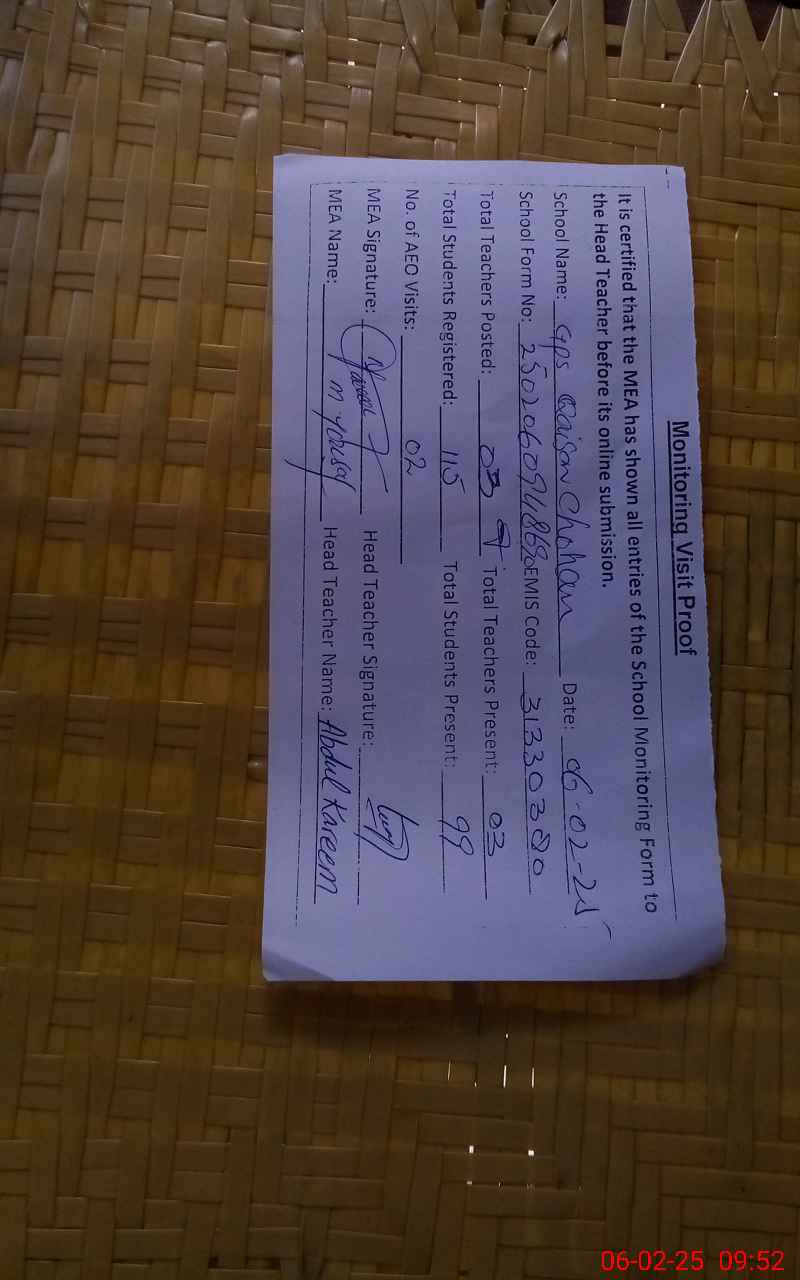 Monitoring Visit Proof
It is certified that the MEA has shown all entries of the School Monitoring Form to
the Head Teacher before its online submission.
School Name: GPS Qaisar Chohan Date: 06-02-25
School Form No: EMIS Code: 31330380
Total Teachers Posted: 03 Total Teachers Present: 03
Total Students Registered: 115 Total Students Present: 99
No. of AEO Visits: 02
MEA Signature: Head Teacher Signature:
MEA Name: M Yousaf Head Teacher Name: Abdul Kareem
06-02-25 09:52